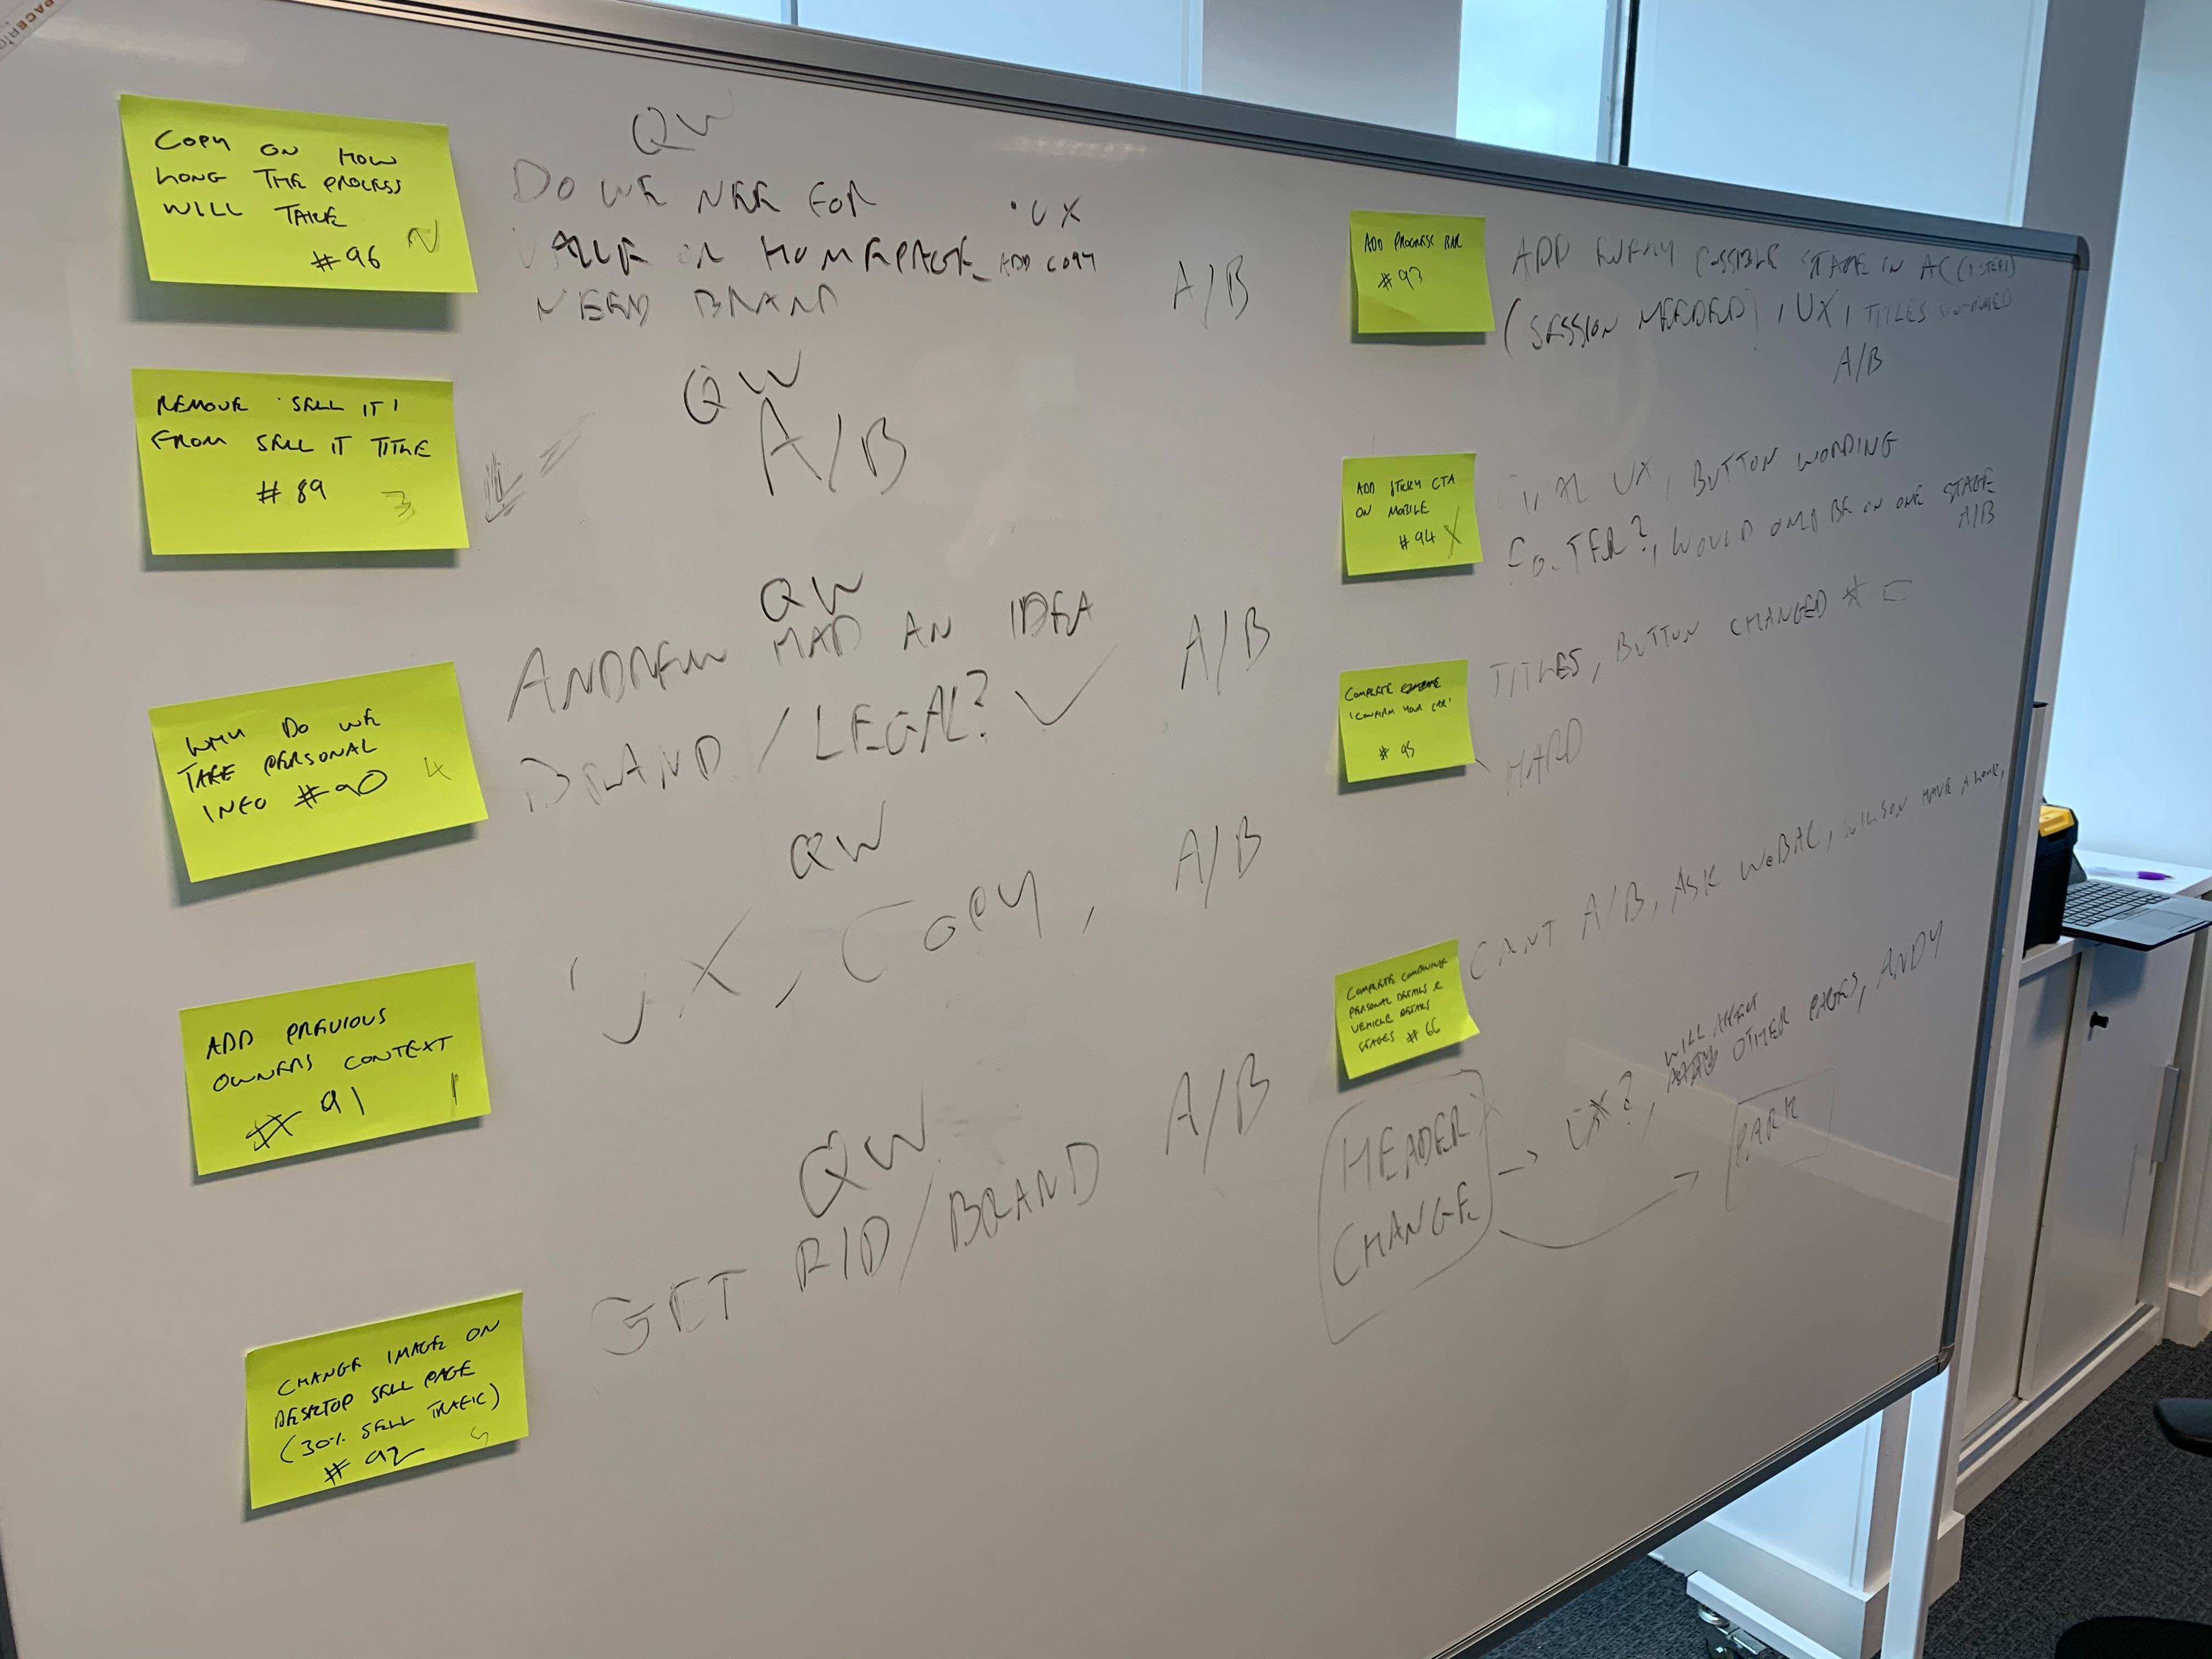 COPY ON HOW
LONG THE PROCESS
WILL TAKE
#96
QW
DO WE NEE FOR
VALUE IN HOMEPAGE
NEED BRAND
UX
ADD COPY
A/B
REMOVE 'SELL IT'
FROM SELL IT TITLE
#89 3
QW
A/B
WHY DO WE
TAKE PERSONAL
INFO #90 4
QW
ANDREW HAD AN IDEA
BRAND / LEGAL? ✓
A/B
ADD PREVIOUS
OWNERS CONTEXT
#91 1
QW
UX, COPY,
A/B
CHANGE IMAGE ON
DESKTOP SELL PAGE
(30% SELL TRAFIC)
#92 5
QW
GET RID/BRAND
A/B
ADD PROGRESS BAR
#93
ADD EVERY POSSIBLE STAGE IN AC
(SESSION NEEDED), UX, TITLES
A/B
ADD STICKY CTA
ON MOBILE
#94 X
UX, BUTTON WORDING
FOOTER?, WOULD ONLY BE ON ONE STAGE
A/B
COMPLETE
'CONFIRM YOUR CAR'
#95
TITLES, BUTTON CHANGED *
HARD
COMPLETE COMBINING
PERSONAL DETAILS &
VEHICLE DETAILS
STAGES #66
CANT A/B, ASK WEBAC, WILSON HAVE A LOOK,
HEADER
CHANGE
→ UX?, WILL AFFECT
OTHER PAGES, ANDY
PARK